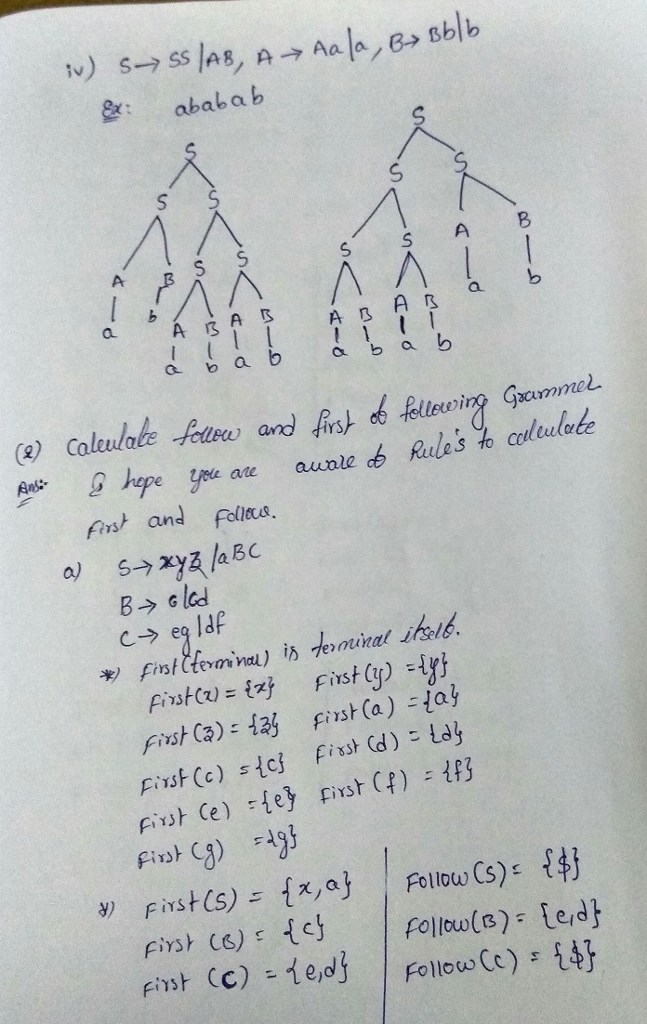 iv) S → SS |AB, A → Aa|a, B → Bb|b
Ex: ababab
S
S S
A B S S
a b A B A B
a b a b
S
S S
S S A B
A B A B a b
a b a b
(2) Calculate follow and first of following Grammer
Ans:- I hope you are aware of Rule's to calculate
first and follow.
a) S → xyz |aBC
B → c|cd
C → eg|df
*) First(terminal) is terminal itself.
First(x) = {x} First(y) = {y}
First(z) = {z} First(a) = {a}
First(c) = {c} First(d) = {d}
First(e) = {e} First(f) = {f}
First(g) = {g}
*) First(S) = {x,a} Follow(S) = {$}
First (B) = {c} Follow(B) = {e,d}
First (C) = {e,d} Follow(C) = {$}